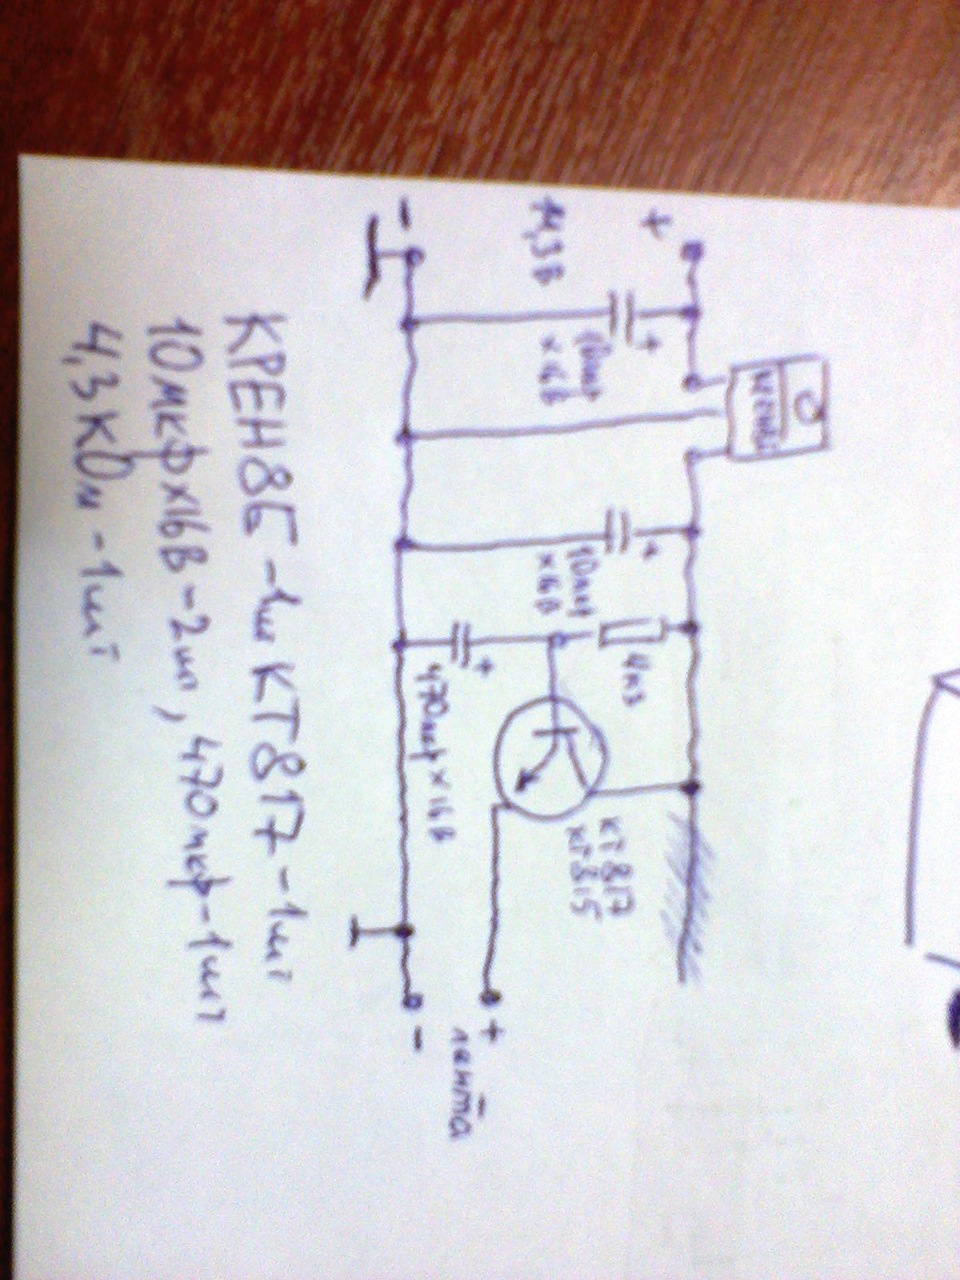 +
11,3В
-
10мкф
х16В
+
10мкф
х16В
+
4к3
470мкф х 16В
+
КТ817
КТ815
+
лента
-
КРЕН8Б -1шт КТ817-1шт
10мкфх16В-2шт, 470мкф-1шт
4,3кОм-1шт